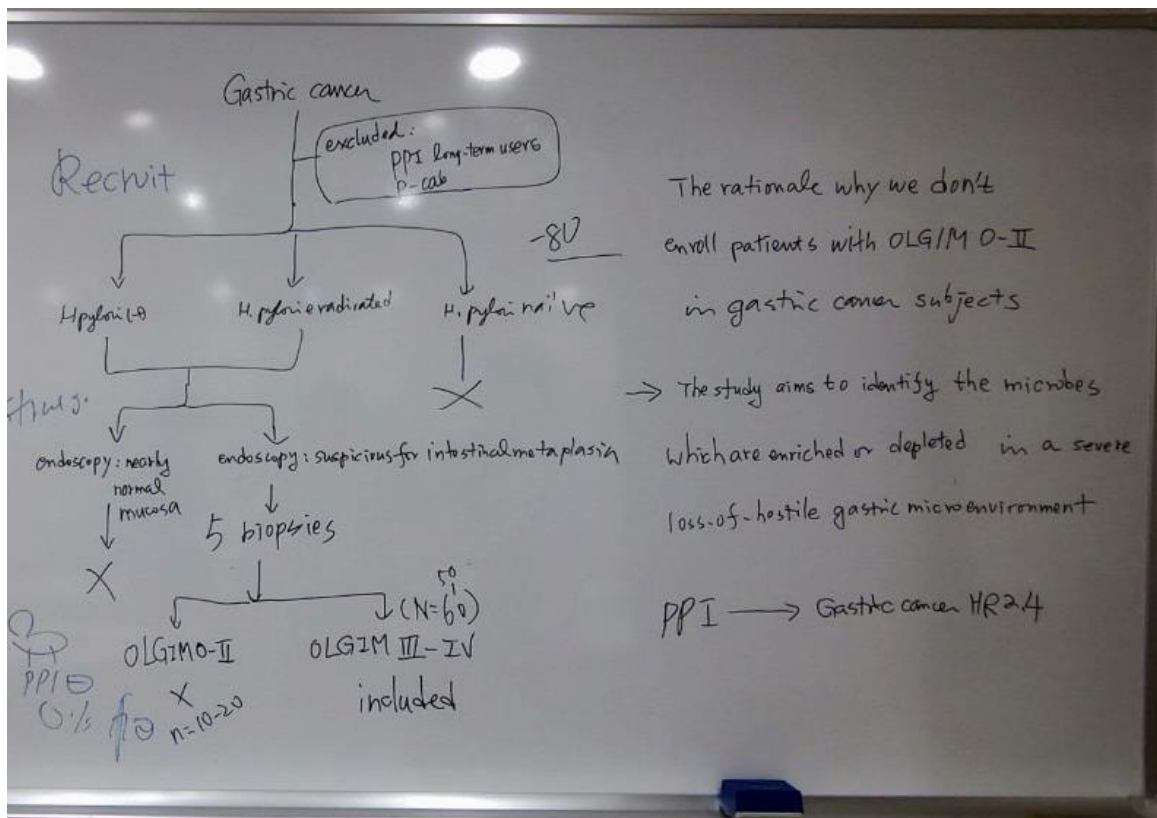 Gastric cancer
excluded:
PPI long-term users
p-cab
Recruit
-80
H. pylori eradicated
H. pylori naïve
X
endoscopy: nearly
normal
mucosa
X
endoscopy: suspicious for intestinal metaplasia
5 biopsies
OLGIM 0-II
X
n=10-20
50
(N=60)
OLGIM III-IV
included
PPI ⊖
The rationale why we don't
enroll patients with OLGIM 0-II
in gastric cancer subjects
→ The study aims to identify the microbes
which are enriched or depleted in a severe
loss-of-hostile gastric microenvironment
PPI → Gastric cancer HR 2.4